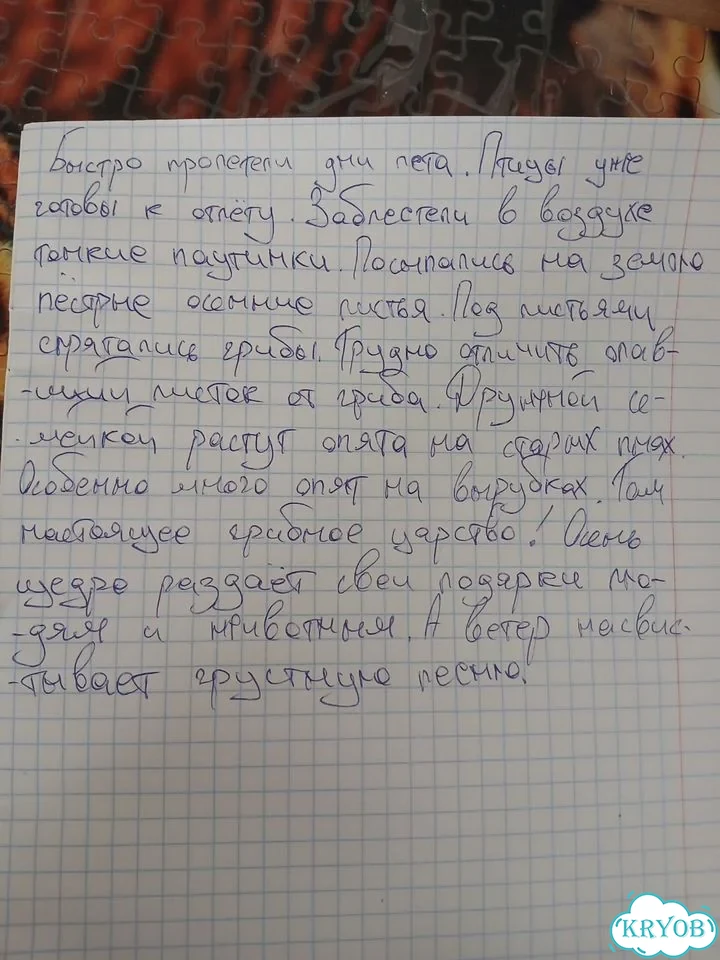 Быстро пролетели дни лета. Птицы уже
готовы к отлёту. Заблестели в воздухе
тонкие паутинки. Посыпались на землю
пёстрые осенние листья. Под листьями
спрятались грибы. Трудно отличить опав-
-ший листок от гриба. Дружной се-
мейкой растут опята на старых пнях.
Особенно много опят на вырубках. Там
настоящее грибное царство! Осень
щедро раздаёт свои подарки лю-
-дям и животным. А ветер насвис-
-тывает грустную песню.
KRYOB